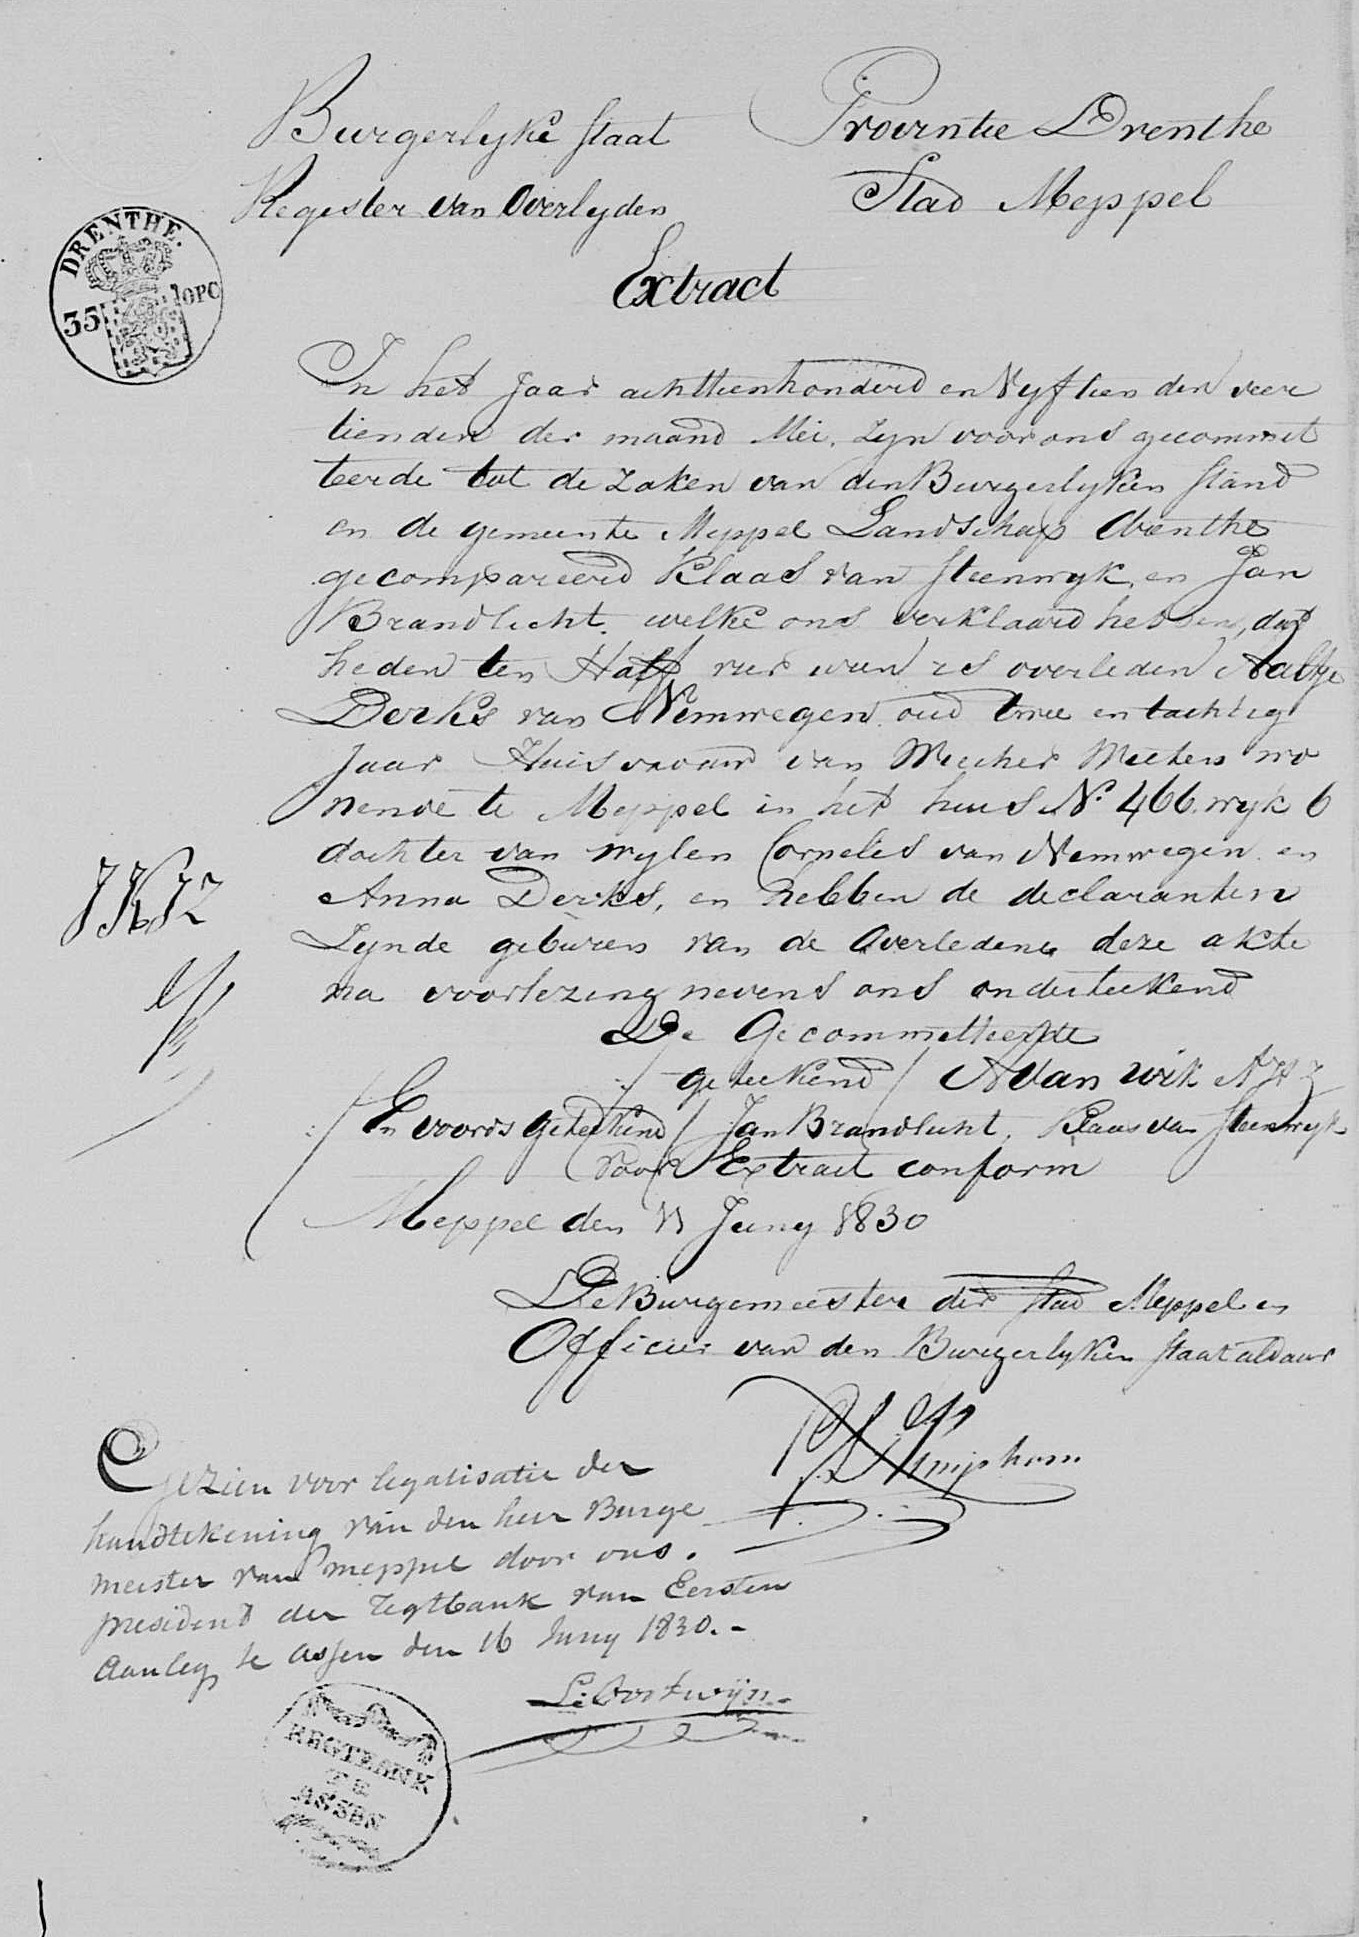 Burgerlyke staat
Register van Overlyden
Provintie Drenthe
Stad Meppel
DRENTHE.
35 10PC
Extract
In het Jaar achttienhonderd en Vyftien den veer
tienden der maand Mei, Zyn voor ons gecommit
teerde tot de zaken van den Burgerlyken stand
in de gemeente Meppel Landschap Drenthe
gecompareerd Klaas van Steenwyk, en Jan
Brandlicht. welke ons verklaard hebben, dat
heden ten Half vier uren is overleden Aaltje
Derks van Nimwegen oud twee en tachtig
Jaar Huisvrouw van Meeter Meeters wo
nende te Meppel in het huis No. 466 wyk 6
dochter van wylen Cornelis van Nimwegen en
Anna Derks, en hebben de declaranten
Zynde geburen van de Overledene deze akte
na voorlezing nevens ons onderteekend
De Gecommitteerde
geteekend / A Van Wik
En voorts geteekend / Jan Brandlicht, Klaas van Steenwyk
Voor Extract conform
Meppel den 11 Juny 1830
De Burgemeester der stad Meppel en
Officier van den Burgerlyken staat aldaar
Knijphorn
Gezien voor legalisatie der
handtekening van den heer Burge
meester van Meppel door ons.
president der Regtbank van Eersten
Aanleg te Assen den 16 Juny 1830.-
L: Oortwijn.
REGTBANK
TE
ASSEN